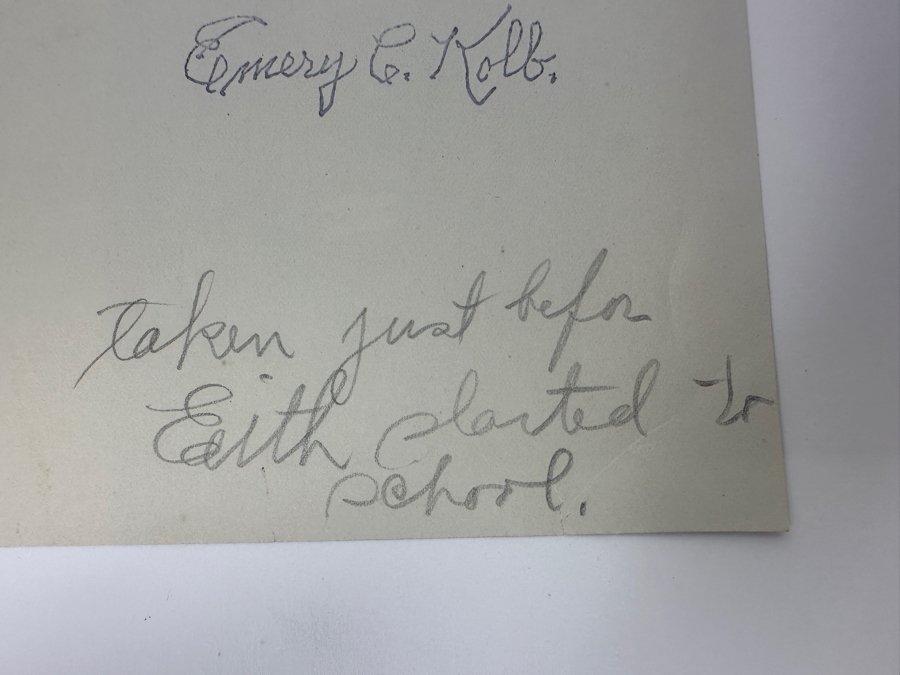 Emery C. Kolb.
taken just before
Edith started to
school.